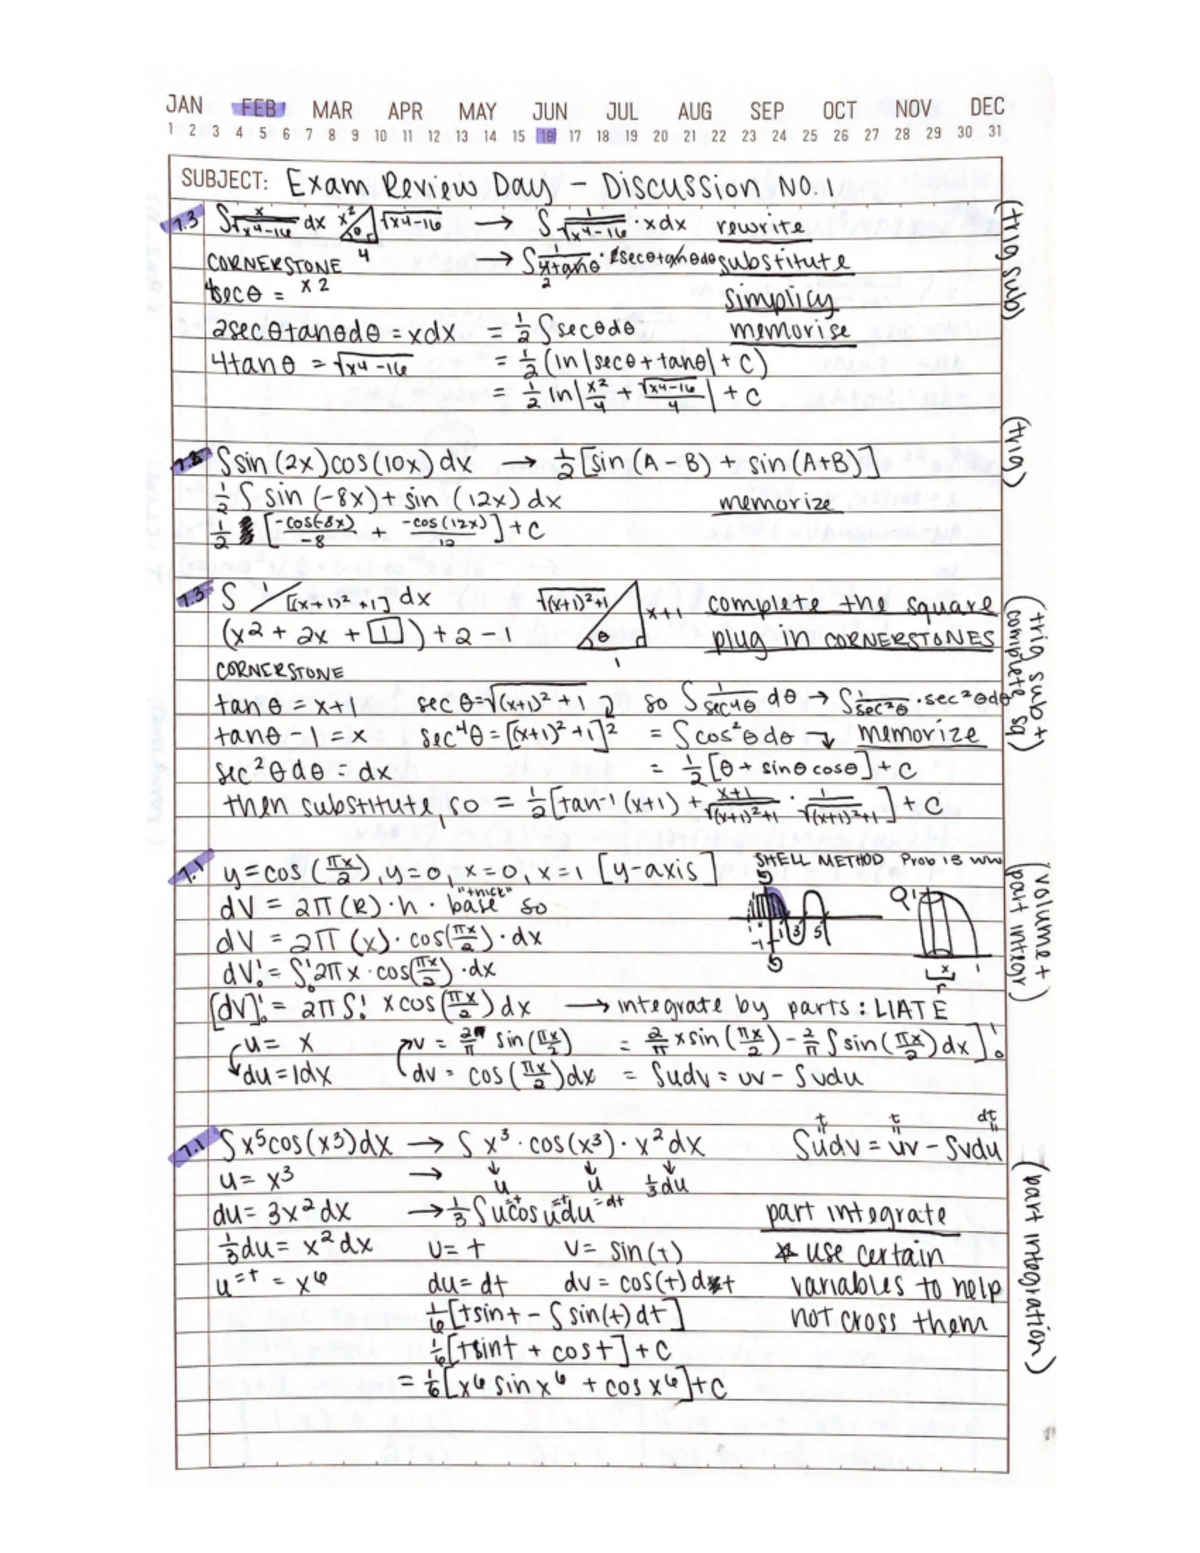 JAN FEB MAR APR MAY JUN JUL AUG SEP OCT NOV DEC
1 2 3 4 5 6 7 8 9 10 11 12 13 14 15 16 17 18 19 20 21 22 23 24 25 26 27 28 29 30 31
SUBJECT: Exam Review Day - Discussion NO. 1
7.3 ∫ x/√x4-16 dx x2 θ 4 √x4-16 → ∫ 1/√x4-16 · xdx rewrite (trig sub)
CORNERSTONE → ∫ 1/4tanθ · 2secθtanθdθ substitute
4secθ = x2 2 simplicy
2secθtanθdθ = xdx = 1/2 ∫secθdθ memorise
4tanθ = √x4-16 = 1/2 (ln|secθ+tanθ| + C)
= 1/2 ln|x2/4 + √x4-16/4| + C
∫sin(2x)cos(10x)dx → 1/2[sin(A-B) + sin(A+B)] (trig)
1/2 ∫ sin(-8x)+ sin (12x) dx memorize
1/2 [-cos(-8x)/-8 + -cos(12x)/12] + C
7.3 ∫ 1/[(x+1)2+1] dx √(x+1)2+1 θ x+1 1 complete the square (trig sub + complete sq)
(x2 + 2x + 1) + 2 - 1 plug in CORNERSTONES
CORNERSTONE
tanθ = x+1 secθ=√(x+1)2+1 so ∫ 1/sec4θ dθ → ∫ 1/sec2θ · sec2θdθ
tanθ - 1 = x sec4θ = [(x+1)2+1]2 = ∫cos2θdθ memorize
sec2θdθ = dx = 1/2[θ + sinθcosθ] + C
then substitute, so = 1/2[tan-1(x+1) + x+1/√(x+1)2+1 · 1/√(x+1)2+1] + C
7.1 y=cos(πx/2), y=0, x=0, x=1 [y-axis] SHELL METHOD Prob 13 WW (volume + part integr)
dV = 2π(R)·h·base "thick" so
dV = 2π(x)·cos(πx/2)·dx -1 1 3 5 1 x r 1
dV = ∫2πx·cos(πx/2)·dx
[dV] = 2π∫ xcos(πx/2)dx → integrate by parts: LIATE
u = x v = 2/π sin(πx/2) = 2/π xsin(πx/2) - 2/π ∫sin(πx/2)dx]
du = 1dx dv = cos(πx/2)dx = ∫udv = uv - ∫vdu
7.1 ∫x5cos(x3)dx → ∫ x3·cos(x3)·x2dx ∫udv = uv - ∫vdu t t dt (part integration)
u = x3 → u u 1/3du
du = 3x2dx → 1/3∫u=t cos u=t du=dt part integrate
1/3du = x2dx u = t v = sin(t) * use certain
u=t = x6 du = dt dv = cos(t)dt variables to help
1/6[tsint - ∫sin(t)dt] not cross them
1/6[tsint + cost] + C
= 1/6[x6sinx6 + cosx6]+C